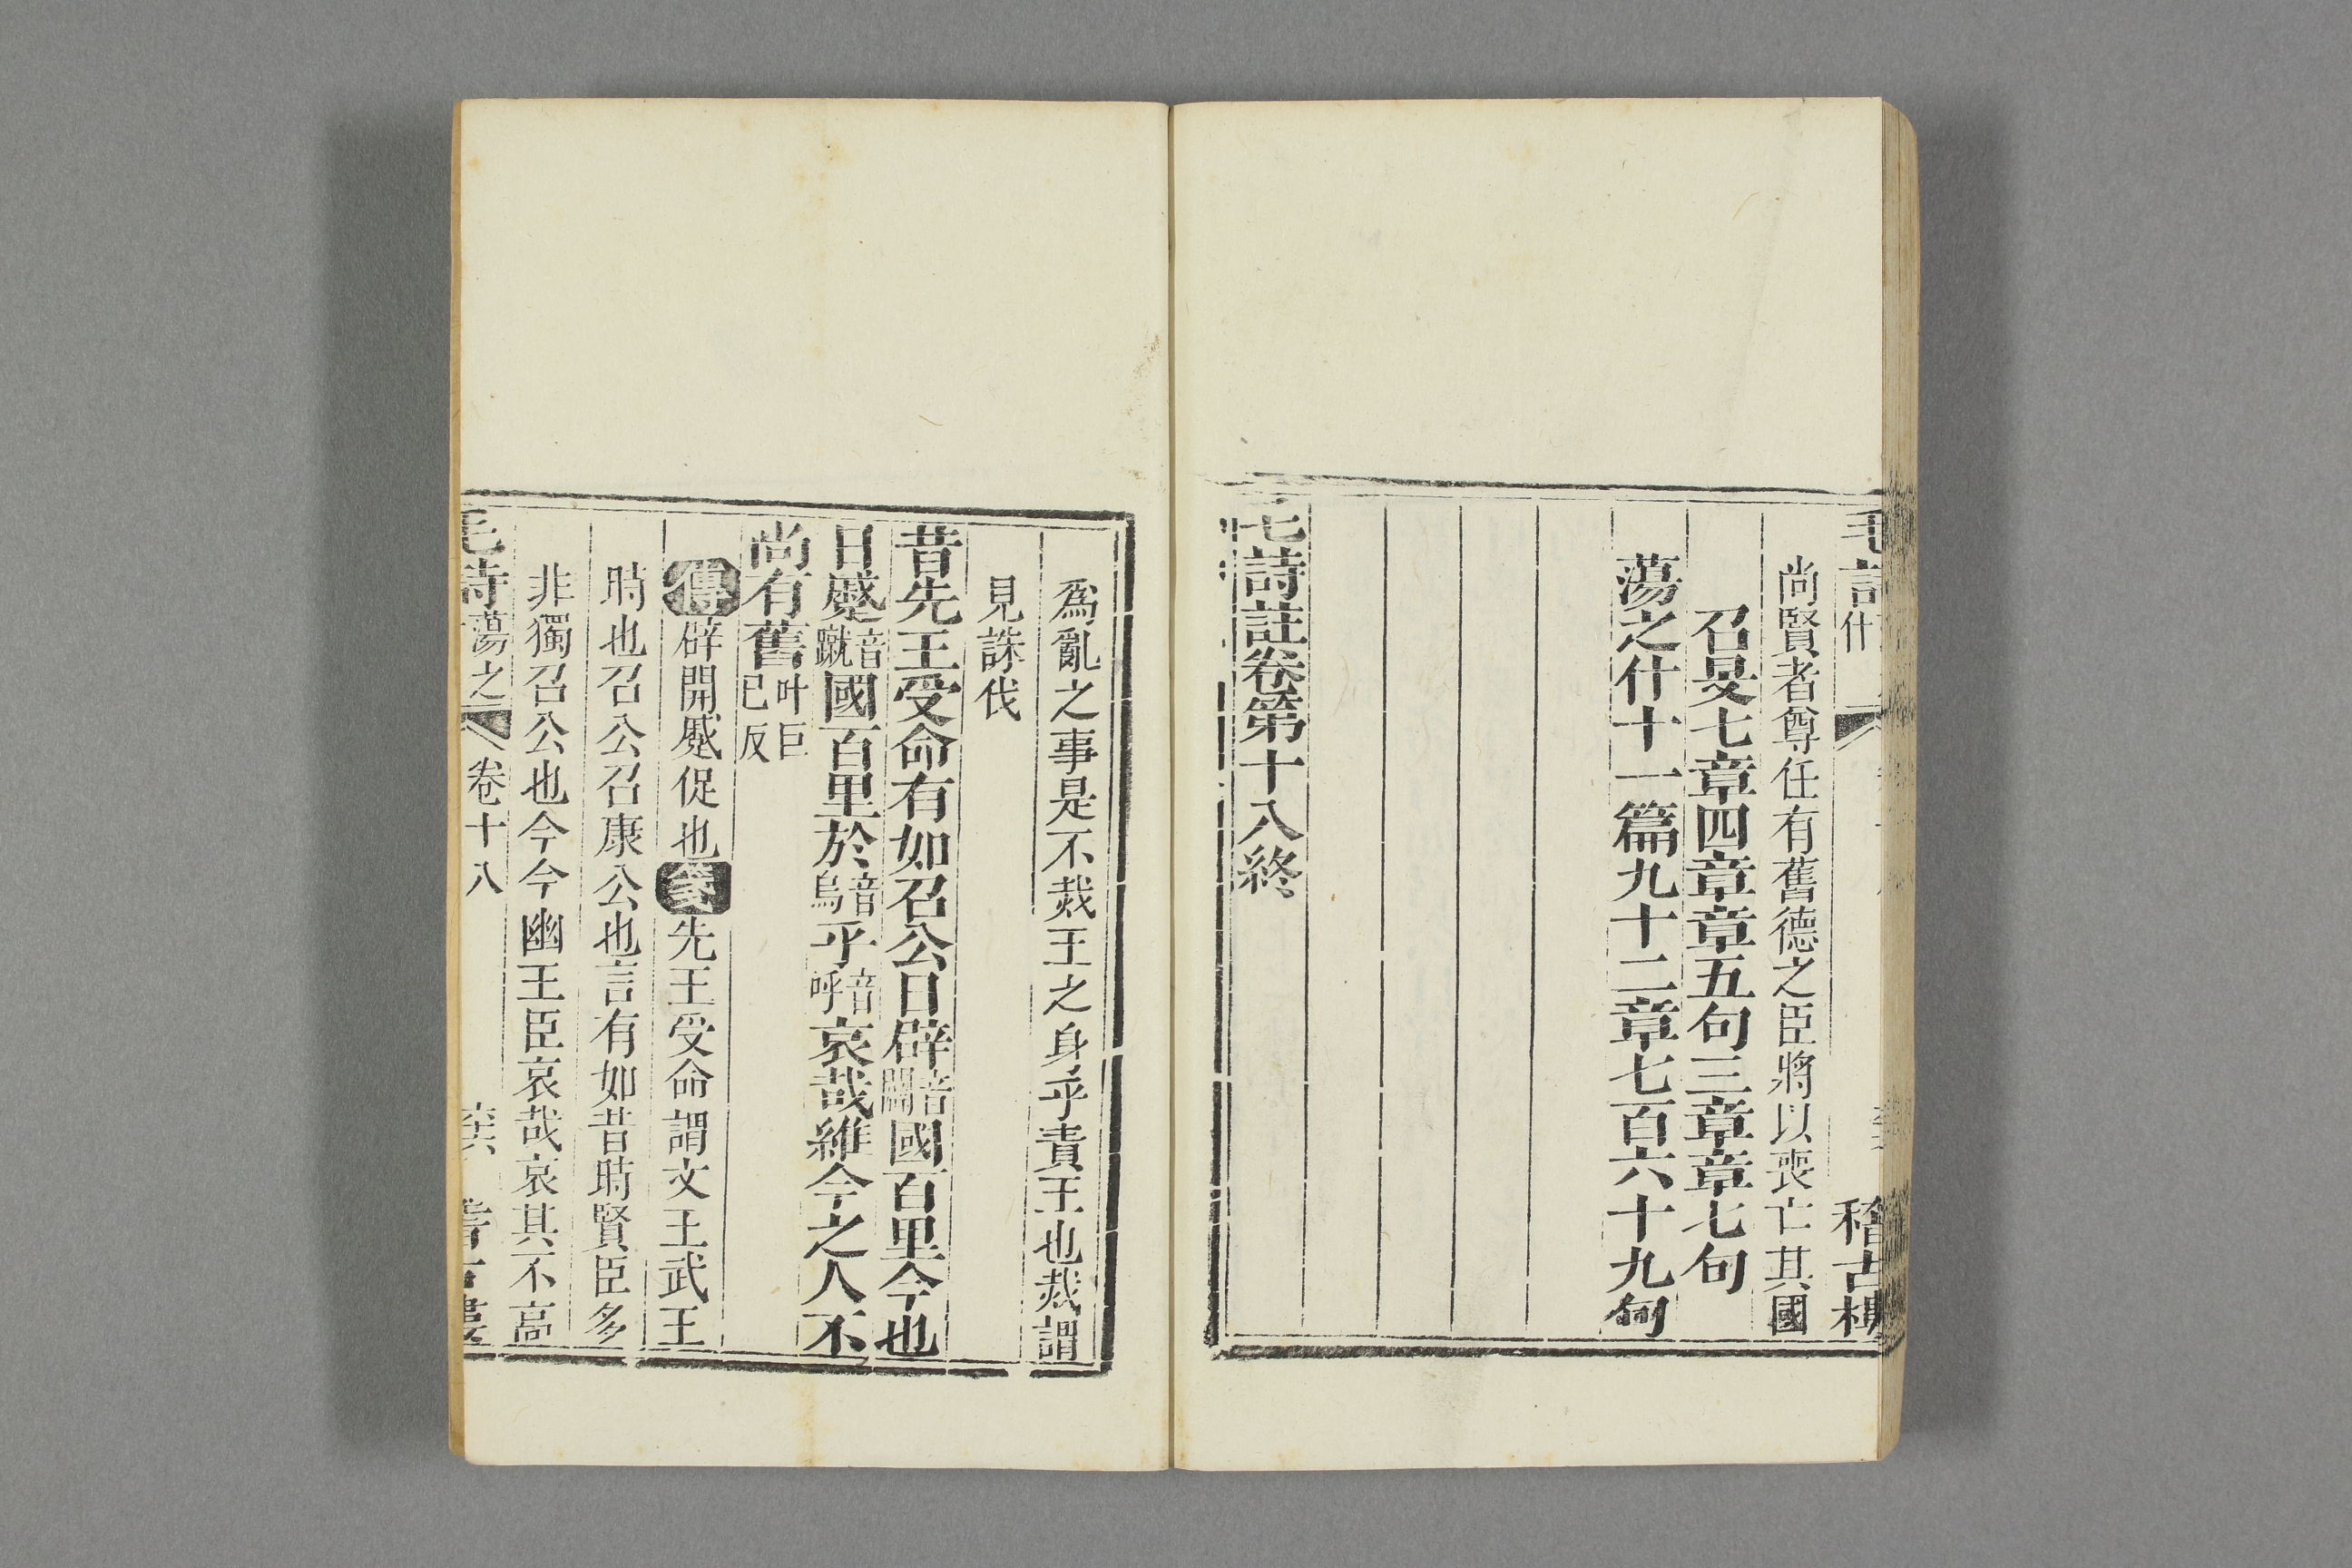 稽古樓
尚賢者尊任有舊德之臣將以喪亡其國
召旻七章四章章五句三章章七句
蕩之什十一篇九十二章七百六十九句
毛詩註卷第十八終
爲亂之事是不烖王之身乎責王也烖謂
見誅伐
昔先王受命有如召公日辟音闢國百里今也
日蹙音蹴國百里於音烏乎音呼哀哉維今之人不
尚有舊叶巨已反
傳辟開蹙促也箋先王受命謂文王武王
時也召公召康公也言有如昔時賢臣多
非獨召公也今今幽王臣哀哉哀其不高
毛詩蕩之 卷十八